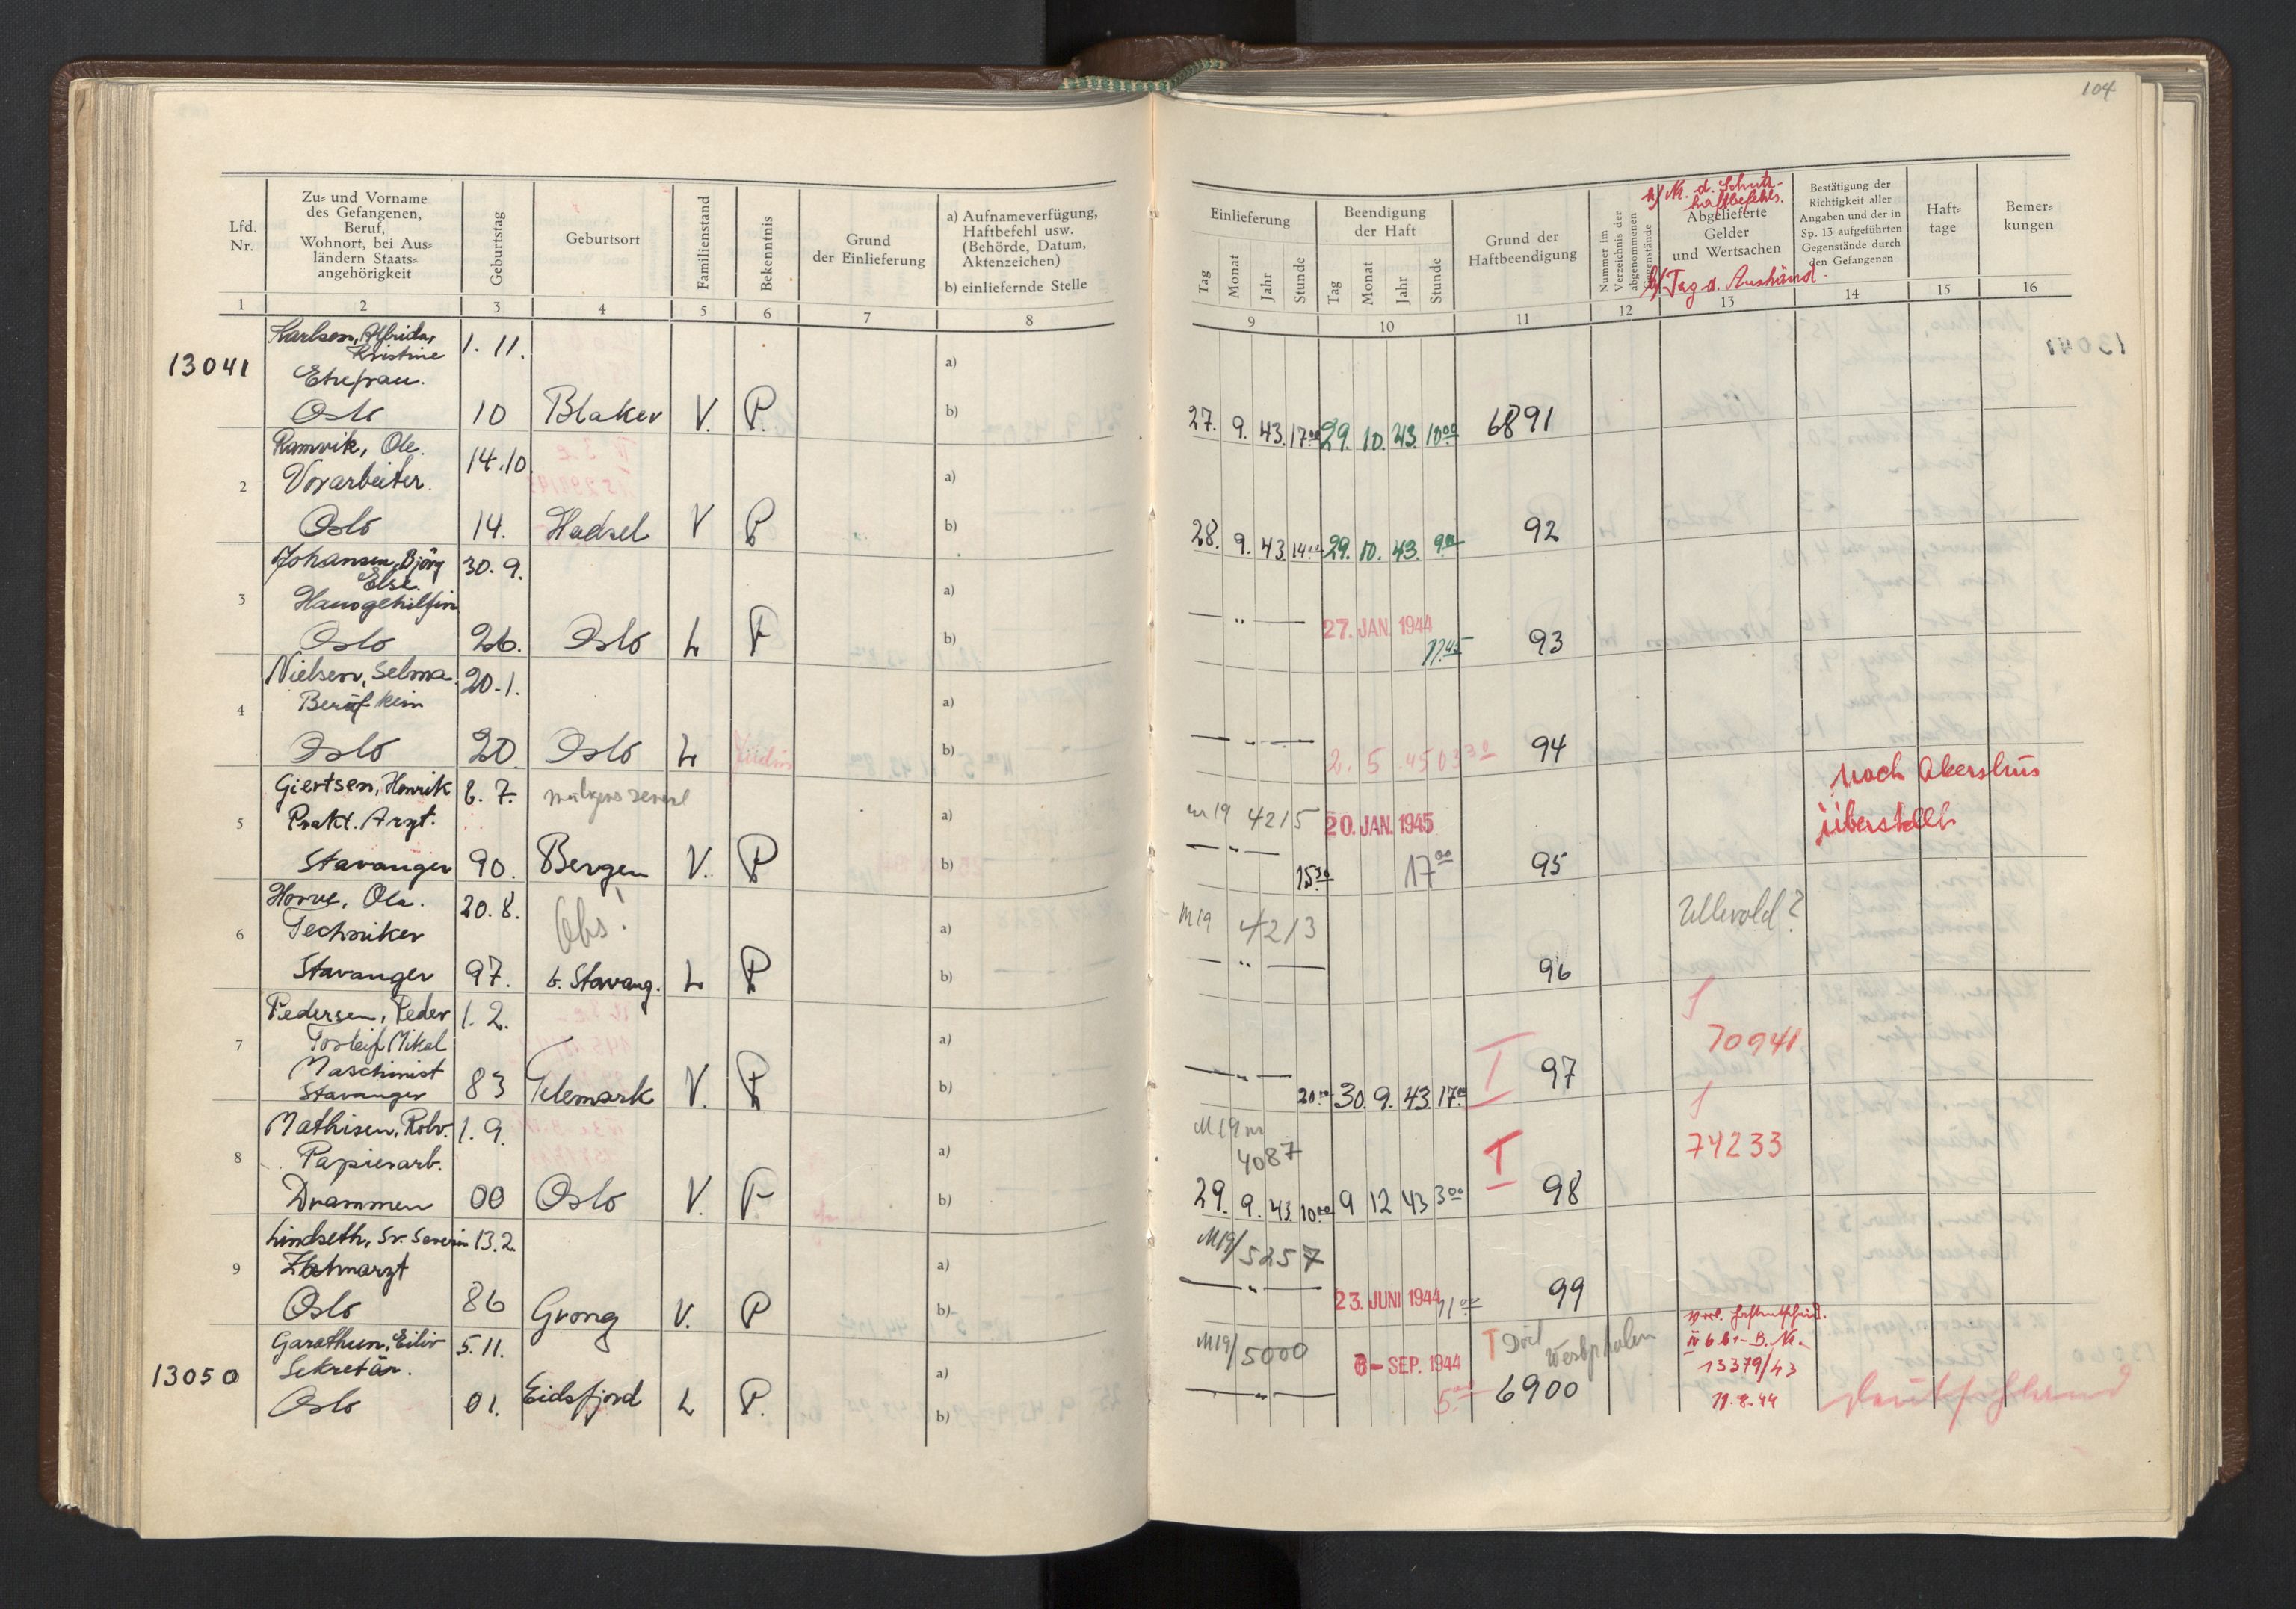 104
Lfd. Nr.
Zu- und Vorname
des Gefangenen,
Beruf,
Wohnort, bei Aus-
ländern Staats-
angehörigkeit
Geburtstag
Geburtsort
Familienstand
Bekenntnis
Grund
der Einlieferung
a) Aufnameverfügung,
Haftbefehl usw.
(Behörde, Datum,
Aktenzeichen)
b) einliefernde Stelle
1 2 3 4 5 6 7 8
Einlieferung
Tag Monat Jahr Stunde
Beendigung
der Haft
Tag Monat Jahr Stunde
Grund der
Haftbeendigung
Nummer im
Verzeichnis der
abgenommenen
Gegenstände
a) Nr. d. Schutz-
haftbefehls.
Abgelieferte
Gelder
und Wertsachen
b) Tag d. Aushänd.
Bestätigung der
Richtigkeit aller
Angaben und der in
Sp. 13 aufgeführten
Gegenstände durch
den Gefangenen
Haft-
tage
Bemer-
kungen
9 10 11 12 13 14 15 16
13041
Karlsen, Alfrida,
Kristine
1. 11.
Ehefrau.
a)
Oslo 10 Blaker V. P. b)
27. 9. 43. 17 00 29. 10. 43. 10 00 6891
Ramvik, Ole.
14. 10.
2 Vorarbeiter. a)
Oslo 14. Hadsel V P b)
28. 9. 43. 14 00 29. 10. 43. 9 00 92
Johansen, Björg
Else.
30. 9.
3 Hausgehilfin a)
Oslo 26. Oslo L P b)
— " — 27. JAN. 1944 17 45 93
Nielsen, Selma. 20. 1.
4 Beruf kein a)
Oslo 20 Oslo L Jüdin b)
— " — 2. 5. 45 03 30 94
Giertsen, Henrik 8. 7.
5 Prakt. Arzt. a)
Stavanger 90. Bergen V. P b)
m 19 4215 20. JAN. 1945
— " — 15 30 17 00 95
nach Akershus
überstellt
Horve, Ola. 20. 8.
Obs!
6 Techniker a)
Stavanger 97. b. Stavang. L P b)
M 19 4213
— " — 96
Ullevold?
Pedersen, Peder 1. 2.
7 Torleif Mikal a)
Maschinist
Stavanger 83 Telemark V. P b)
— " — 20 00 30. 9. 43. 17 00 I 97
70941
Mathisen, Rolv. 1. 9.
8 Papierarb. a)
Drammen 00 Oslo V. P b)
M 19 nr
4087
29. 9. 43. 10 00 9 12 43 3 00 I 98
74233
Lindseth, Sv. Severin 13. 2.
9 Zahnarzt a)
Oslo 86 Grong V. P b)
M19/5257
— " — 23. JUNI 1944 11 00 99
13050
Garathun, Eiliv 5. 11.
Sekretär. a)
Oslo 01. Eidsfjord L P. b)
M19/5000 6 - SEP. 1944 5 00
— " — T Westphalen
6900
IV 6 b1 - B. Nr.
13379/43
19. 8. 44
Deutschland